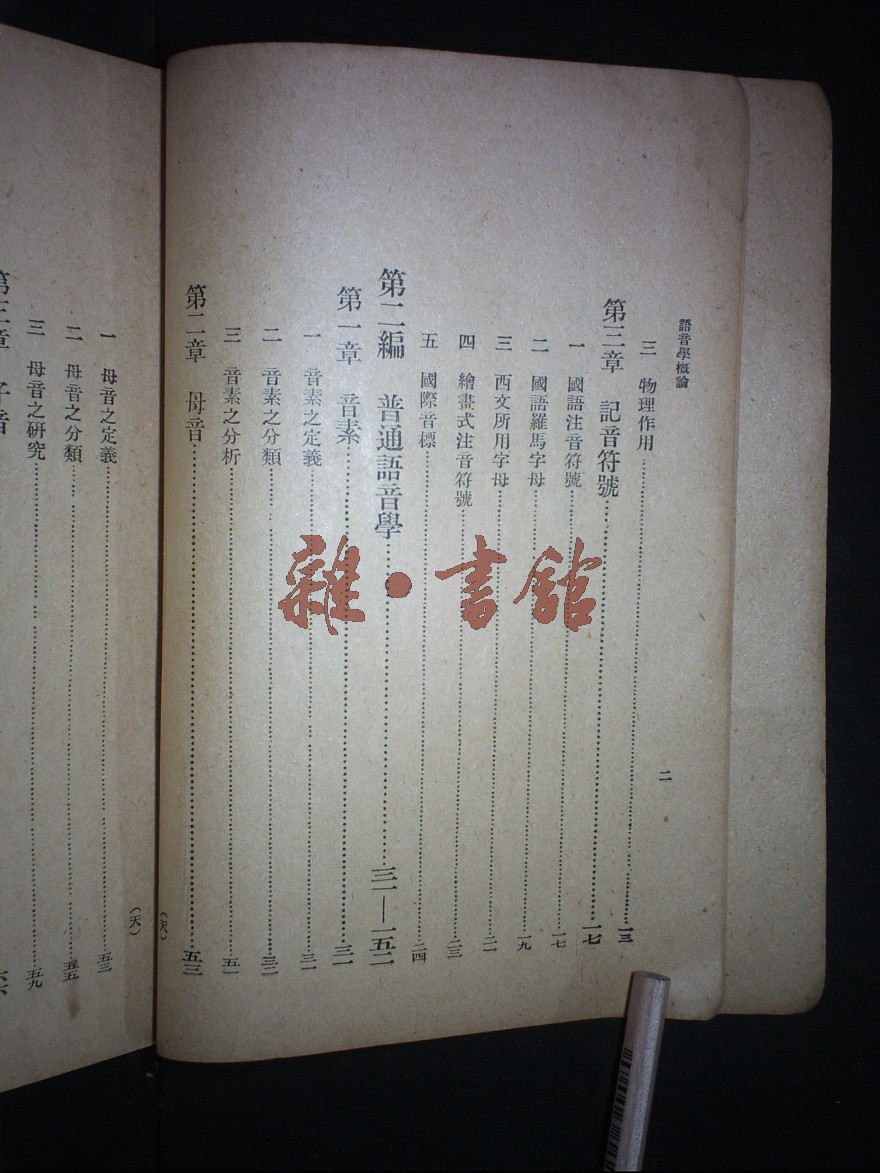 語音學概論
二
三 物理作用 一三
第三章 記音符號 一七
一 國語注音符號 一七
二 國語羅馬字母 一九
三 西文所用字母 二一
四 繪畫式注音符號 二三
五 國際音標 二四
第二編 普通語音學 三一—一五二
第一章 音素 三一
一 音素之定義 三一
二 音素之分類 三二
三 音素之分析 五一
第二章 母音 五三
(天)
(天)
一 母音之定義 五三
二 母音之分類 五五
三 母音之研究 五九
第三章 子音
雜·書館